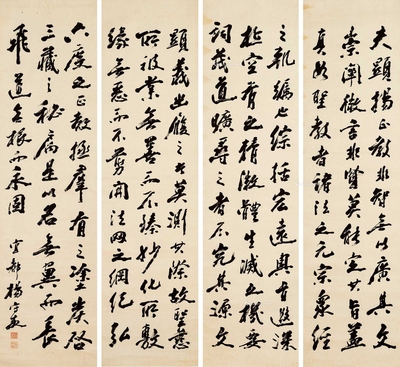 夫顯揚正教非智無以廣其文
崇闡微言非賢莫能定其旨蓋
真如聖教者諸法之元宗衆經
之軌躅也綜括宏遠奧旨遐深
極空有之精微體生滅之機要
詞茂道曠尋之者不究其源文
顯義幽履之者莫測其際故聖慈
所被業無善而不臻妙化所敷
緣無惡而不剪開法網之綱紀弘
六度之正教拯羣有之塗炭啓
三藏之秘扃是以名無翼而長
飛道無根而永固 宜都楊守敬